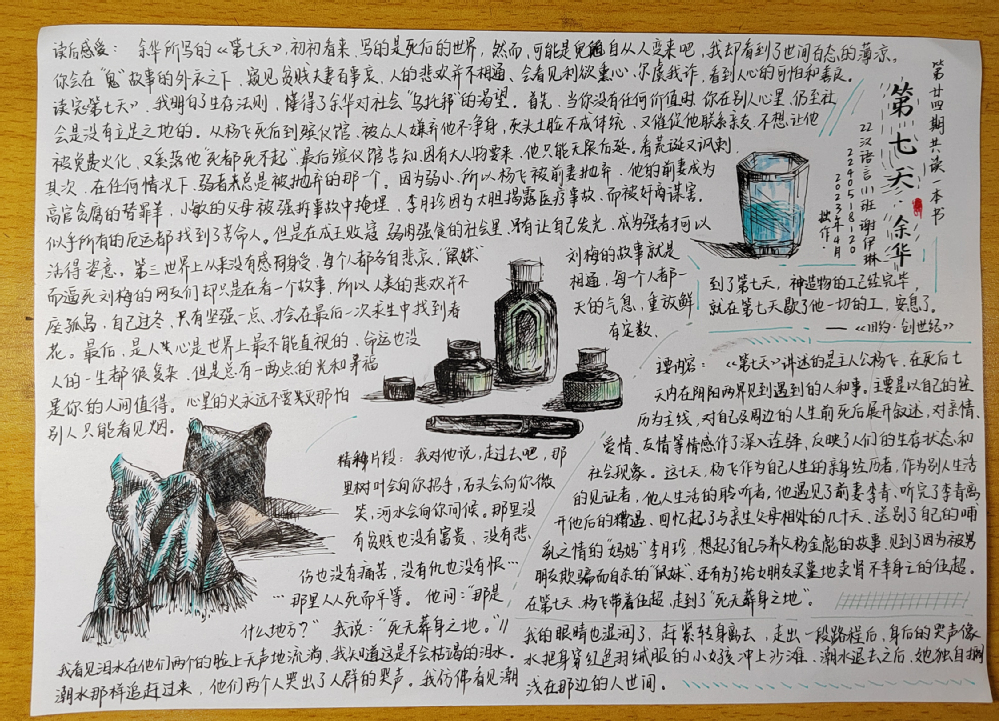 读后感受： 余华所写的《第七天》，初初看来，写的是死后的世界，然而，可能是鬼魂自从人变来吧，我却看到了世间百态的薄凉。
你会在“鬼”故事的外衣之下，窥见贫贱夫妻百事哀、人的悲欢并不相通、会看见利欲熏心、尔虞我诈，看到人心的可怕和善良。
读完《第七天》、我明白了生存法则，懂得了余华对社会“乌托邦”的渴望。首先，当你没有任何价值时，你在别人心里，仍至社
会是没有立足之地的。从杨飞死后到殡仪馆，被众人嫌弃他不净身，灰头土脸不成体统，又催促他联系亲友，不想让他
被免费火化，又奚落他“死都死不起”最后殡仪馆告知，因有大人物要来，他只能无限后延。有荒诞又讽刺。
其次，在任何情况下，弱者未总是被抛弃的那一个。因为弱小，所以杨飞被前妻抛弃，他的前妻成为
高官贪腐的替罪羊，小敏的父母被强拆事故中掩埋，李月珍因为大胆揭露医疗事故，而被奸商谋害。
似乎所有的厄运都找到了苦命人。但是在成王败寇，弱肉强食的社会里，只有让自己发光，成为强者才可以
活得姿意。第三世界上从来没有感同身受，每个人都各自悲哀，“鼠妹”
刘梅的故事就是
而逼死刘梅的网友们却只是在看一个故事，所以人类的悲欢并不
相通，每个人都一
座孤岛，自己过冬，只有坚强一点，才会在最后一次求生中找到春
天的气息，重放鲜
花。最后，是人与心是世界上最不能直视的，命运也没
有定数，
人的一生都很复杂，但是总有一两点的光和幸福
是你的人间值得。心里的火永远不要熄灭那怕
别人只能看见烟。
第廿四期共读一本书
第七天·余华
22汉语言(1)班谢伊琳
2240518120
2023年4月
拙作·
到了第七天，神造物的工已经完毕，
就在第七天歇了他一切的工，安息了。
——《旧约·创世纪》
主要内容： 《第七天》讲述的是主人公杨飞，在死后七
天内在阴阳两界见到遇到的人和事。主要是以自己的经
历为主线，对自己及周边的人生前死后展开叙述，对亲情、
爱情、友情等情感作了深入诠释，反映了人们的生存状态和
社会现象。这七天，杨飞作为自己人生的亲身经历者，作为别人生活
的见证者，他人生活的聆听者，他遇见了前妻李青、听完了李青离
开他后的糟遇、回忆起了与亲生父母相处的几十天、送别了自己的哺
乳之情的“妈妈”李月珍，想起了自己与养父杨金彪的故事、见到了因为被男
朋友欺骗而自杀的“鼠妹”、还有为了给女朋友买墓地卖肾不幸身亡的伍超。
在第七天，杨飞带着伍超，走到了“死无葬身之地”。
精神片段： 我对他说，走过去吧，那
里树叶会向你招手，石头会向你微
笑，河水会向你问候。那里没
有贫贱也没有富贵，没有悲
伤也没有痛苦，没有仇也没有恨…
…那里人人死而平等。 他问：“那是
什么地方？” 我说：“死无葬身之地。”//
我看见泪水在他们两个的脸上无声地流淌，我知道这是不会枯竭的泪水。
我的眼睛也湿润了，赶紧转身离去，走出一段路程后，身后的哭声像
潮水那样追赶过来，他们两个人哭出了人群的哭声。我仿佛看见潮
水把身穿红色羽绒服的小女孩冲上沙滩，潮水退去之后，她独自搁
浅在那边的人世间。